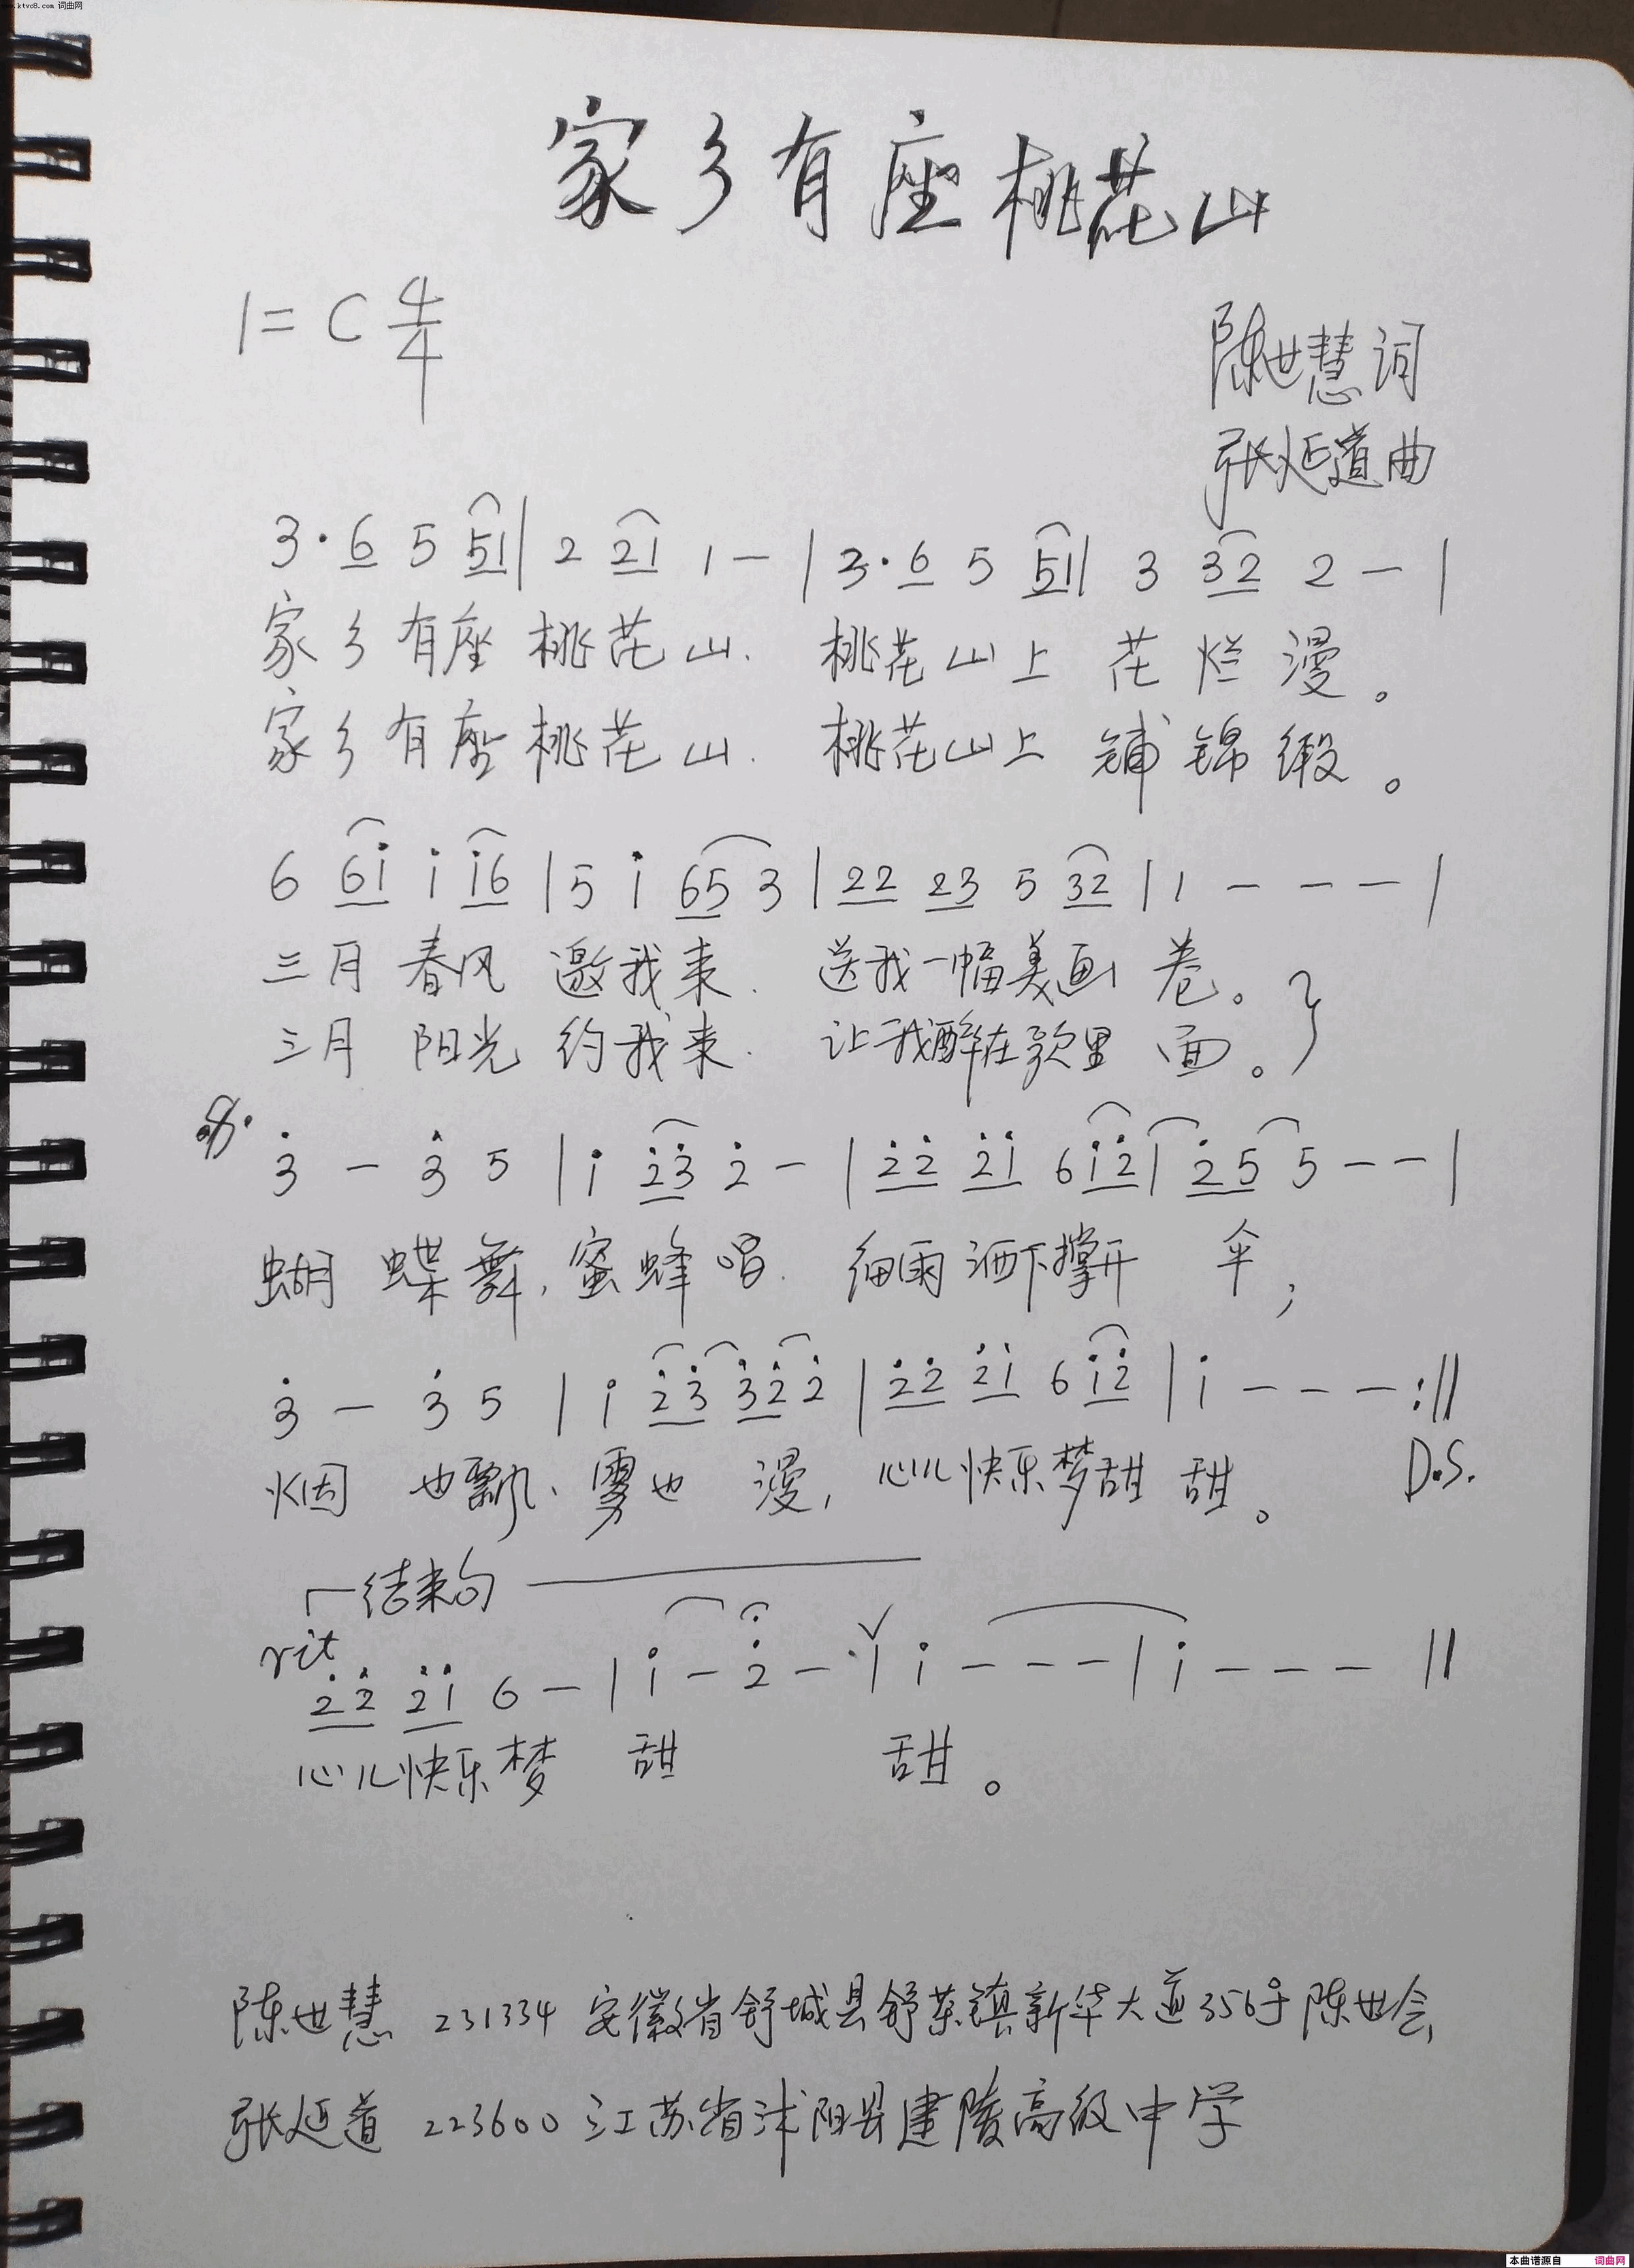 www.ktvc8.com 词曲网
家乡有座桃花山
1=C 4/4
陈世慧词
张延道曲
3·6 5 51| 2 21 1 - | 3·6 5 51| 3 32 2 - |
家乡有座桃花山. 桃花山上 花烂漫。
家乡有座桃花山. 桃花山上 铺锦缎。
6 6i i i6 | 5 i 65 3 | 22 23 5 32 | 1 - - - |
三月春风 邀我来. 送我一幅美画卷。}
三月 阳光 约我来. 让我醉在歌里面。
3 - 3 5 | i 23 2 - | 22 2i 6 i2 | 25 5 - - |
蝴蝶舞,蜜蜂唱. 细雨洒下撑开 伞;
3 - 3 5 | i 23 32 2 | 22 2i 6 i2 | i - - - :||
烟 也飘、雾也 漫, 心儿快乐梦甜甜。 D.S.
结束句
rit
22 2i 6 - | i - 2 - | i - - - | i - - - ||
心儿快乐梦 甜 甜。
陈世慧 231334 安徽省舒城县舒茶镇新华大道356号陈世会
张延道 223600 江苏省沭阳县建陵高级中学
本曲谱源自 词曲网